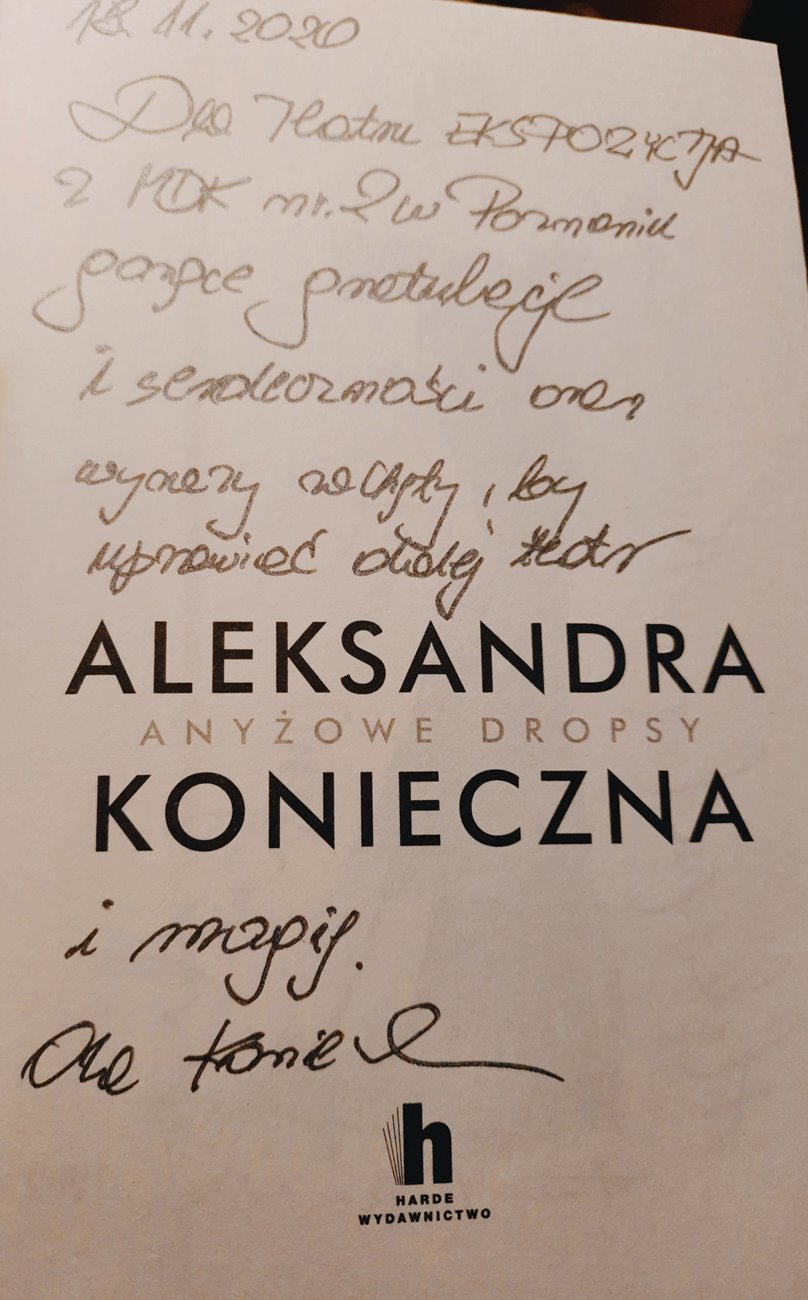 18.11.2020
Dla Teatru EKSPOZYCJA
z MDK nr. 2 w Poznaniu
gorące gratulacje
i serdeczności oraz
wyrazy zachęty, by
uprawiać dalej teatr
ALEKSANDRA
ANYŻOWE DROPSY
KONIECZNA
i magię.
Ola Konie
h
HARDE
WYDAWNICTWO